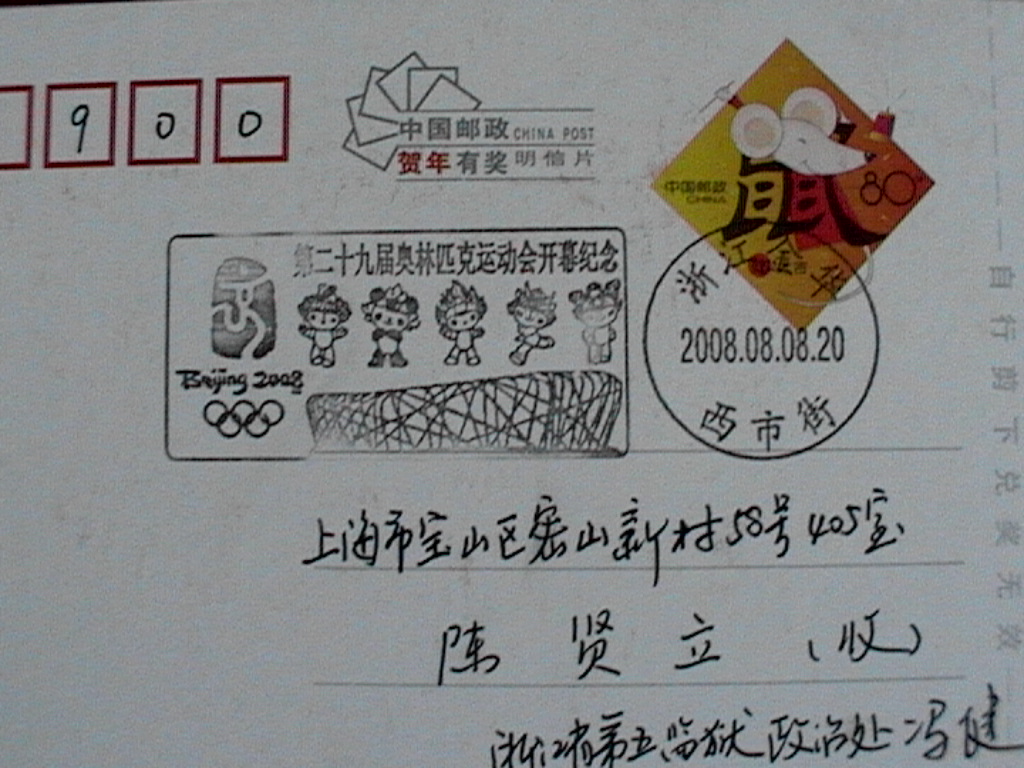 900
中国邮政 CHINA POST
贺年有奖明信片
中国邮政
CHINA
80
鼠
第二十九届奥林匹克运动会开幕纪念
Beijing 2008
浙江金华
2008.08.08.20
西市街
自行剪下兑奖无效
上海市宝山区密山新村58号405室
陈贤立(收)
浙江省第五监狱政治处冯健